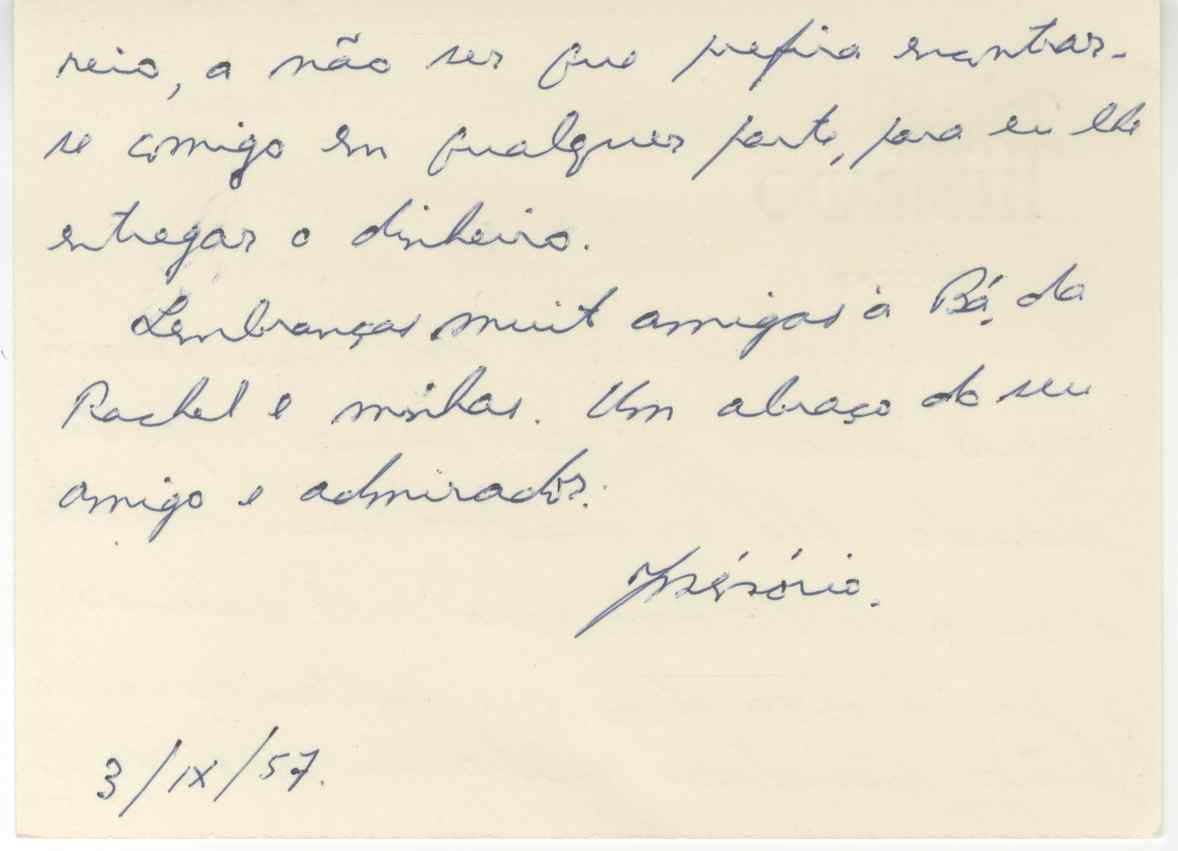 reio, a não ser que prefira encontrar-
se comigo em qualquer parte, para eu lhe
entregar o dinheiro.
Lembranças muito amigas à Bá, da
Rachel e minhas. Um abraço do seu
amigo e admirador.
3/IX/57.